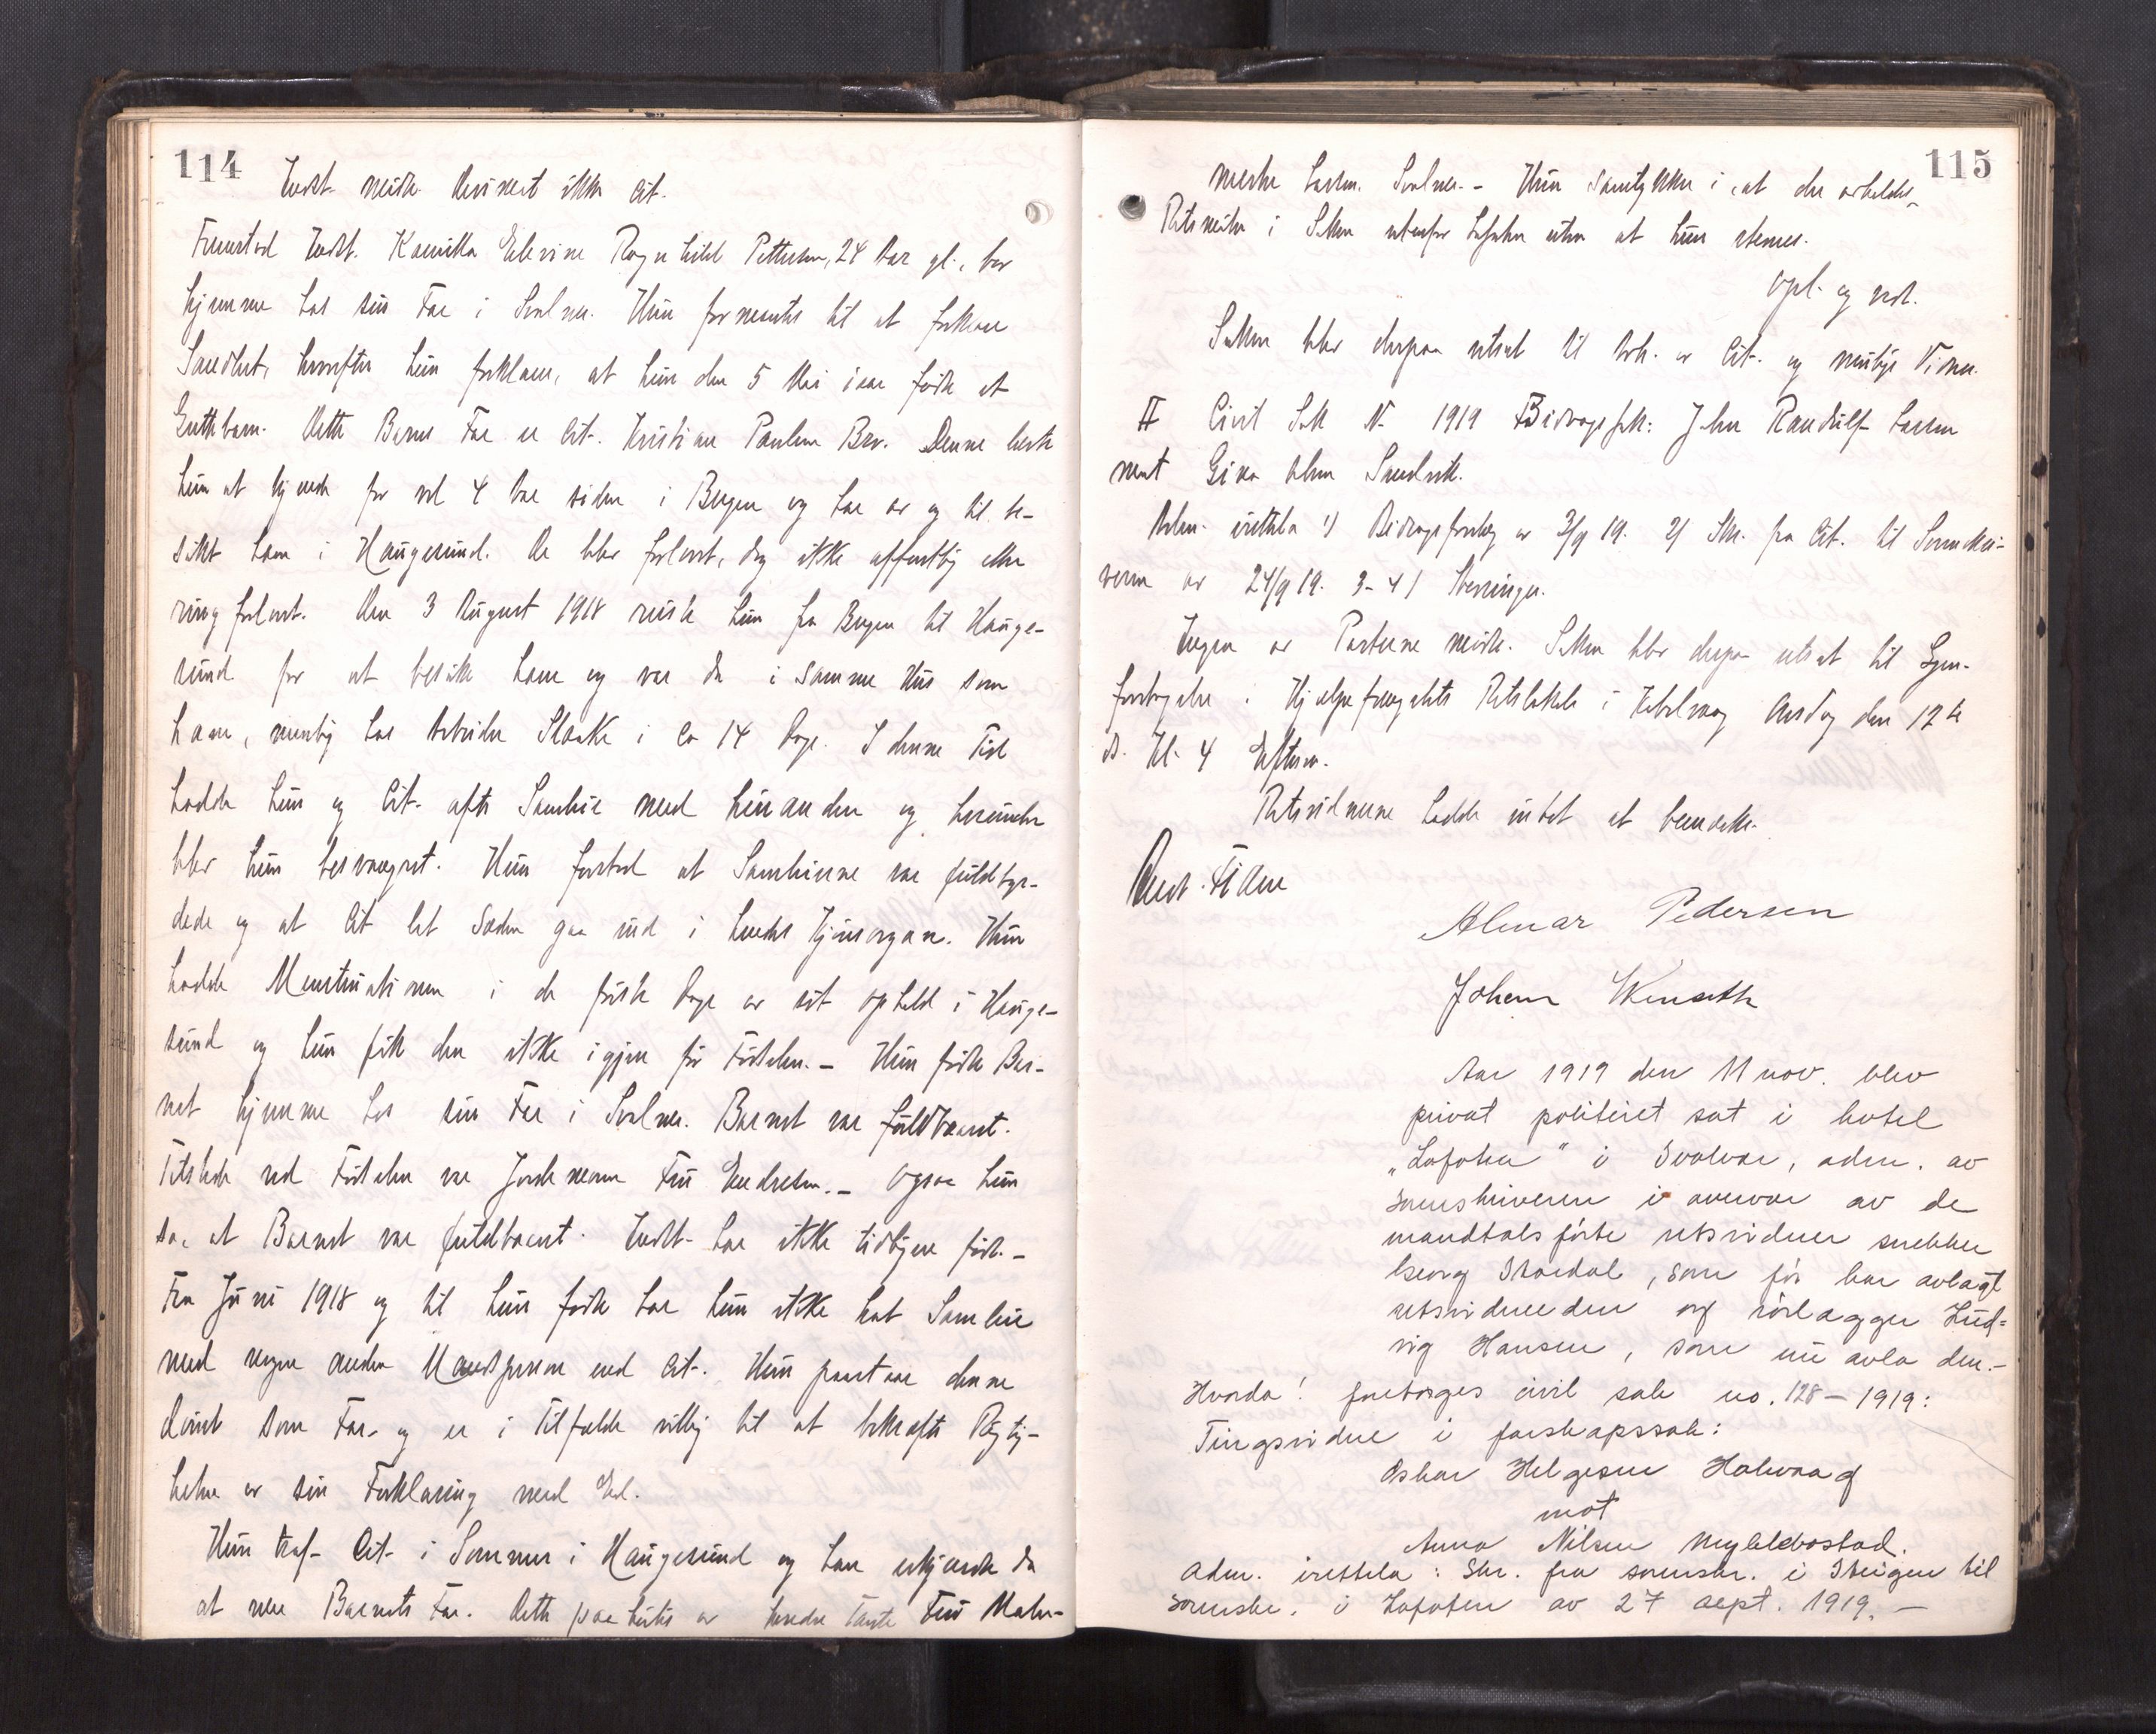 114
Indst. møtte derimot ikke Cit.
Fremstod Indst. Kamilla Elevine Ragnhild Pettersen, 24 Aar gl., bor
hjemme hos sin Far i Svolvær. Hun formantes til at forklare
Sandhet, hvorefter hun forklarer, at hun den 5 Mai iaar fødte et
Guttebarn. Dette Barns Far er Cit. Kristian Paulsen Bø. Denne lærte
hun at kjende for vel 4 Aar siden i Bergen og har og til be-
søkt ham i Haugesund. De blev forlovet, dog ikke offentlig eller
ringforlovet. Den 3 August 1918 reiste hun fra Bergen til Hauge-
sund for at besøke ham og var da i samme Hus som
ham, nemlig hos Arbeider i ca 14 Dage. I denne Tid
hadde hun og Cit. ofte Samleie med hinanden og herunder
blev hun besvangret. Hun forstod at Samleiene var fuldbyr-
dede og at Cit lot Sæden gaa ind i hendes Kjønsorgan. Hun
hadde Menstruationen i de første Dage av sit Ophold i Hauge-
sund og hun fik den ikke igjen før Fødselen. - Hun fødte Bar-
net hjemme hos sin Far i Svolvær. Barnet var fuldbaaret.
Tilstede ved Fødselen var Jordemoren Fru Endresen. - Ogsaa hun
sa, at Barnet var fuldbaaret. Indst. har ikke tidligere født. -
Fra Juni 1918 og til hun fødte har hun ikke hat Samleie
med nogen anden Mandsperson end Cit. Hun paastaar denne
dømt som Far og er i Tilfælde villig til at bekræfte Rigtig-
heten av sin Forklaring med Ed.
Hun traf Cit. i Sommer i Haugesund og han erkjendte da
at være Barnets Far. Dette paahørtes av hendes Tante Fru
115
Larsen. Svolvær. - Hun samtykker i, at der avholdes
Retsmøter i Saken utenfor Lofoten uten at hun stevnes.
Opl. og vedt.
Saken blev derpaa utsat til Avh. av Cit. og mulige Vidner.
II Civil Sak No 1919 Bidragssak: John Randulf Larsen
mot Gina Olsen Sandvik.
Adm. irettela 1) Bidragsforelæg av 3/9 19. 2) Skr. fra Cit. til Sorenskri-
veren av 24/9 19. 3-4) Stevninger.
Ingen av Parterne møtte. Saken blev derpaa utsat til Gjen-
foretagelse i Hjælpefængslets Retslokale i Kabelvaag Onsdag den 12te
ds. Kl. 4 Efterm.
Retsvidnerne hadde intet at bemerke.
Almar Pedersen
Johan
Aar 1919 den 11 nov. blev
privat politiret sat i hotel
„Lofoten" i Svolvær, adm. av
sorenskriveren i overvær av de
mandtalsførte retsvidner snekker
Georg Skardal, som før har avlagt
retsvidneeden og rørlægger Lud=
vig Hansen, som nu avla den. -
Hvorda! foretoges civil sak no. 128 - 1919:
Tingsvidne i farskapssak:
Oskar Helgesen Holvaag
mot
Anna Nilsen Myklebostad.
Adm. irettela: Skr. fra sorenskr. i Steigen til
sorenskr. i Lofoten av 27 sept. 1919. -